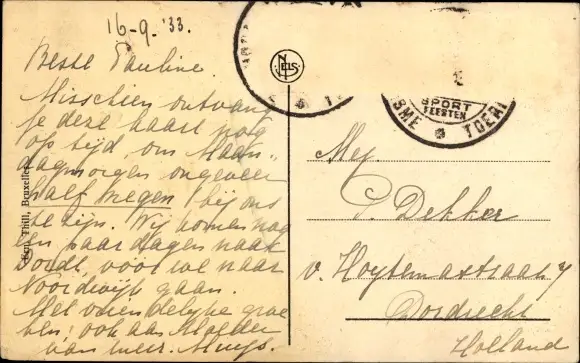 16-9.'33.
Beste Pauline.
Misschien ontvang
je deze kaart nog
op tijd om Maan-
dagmorgen ongeveer
half negen bij ons
te zijn. Wij komen nog
een paar dagen naar
Dordt, vóór we naar
Noordwijk gaan.
Met vriendelijke groe
ten, ook aan Moeder
van meer. Muys.
Ern. Thill, Bruxelles
NELS
SPORT
FEESTEN
SME * TOERI
Mej.
P. Dekker
v. Hoytemastraat 7
Dordrecht
Holland